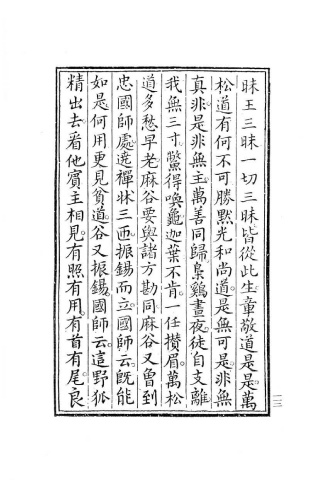 昧王三昧一切三昧皆從此生章敬道是是萬
松道有何不可勝黙光和尚道是無可是非無
真非是非無主萬善同歸梟鷄晝夜徒自支離
我無三寸鱉得喚龜迦葉不肯一任攅眉萬松
道多愁早老麻谷要與諸方勘同麻谷又曾到
忠國師處遶禪牀三匝振錫而立國師云既能
如是何用更見貧道谷又振錫國師云這野狐
精出去看他賓主相見有照有用有首有尾良
一三